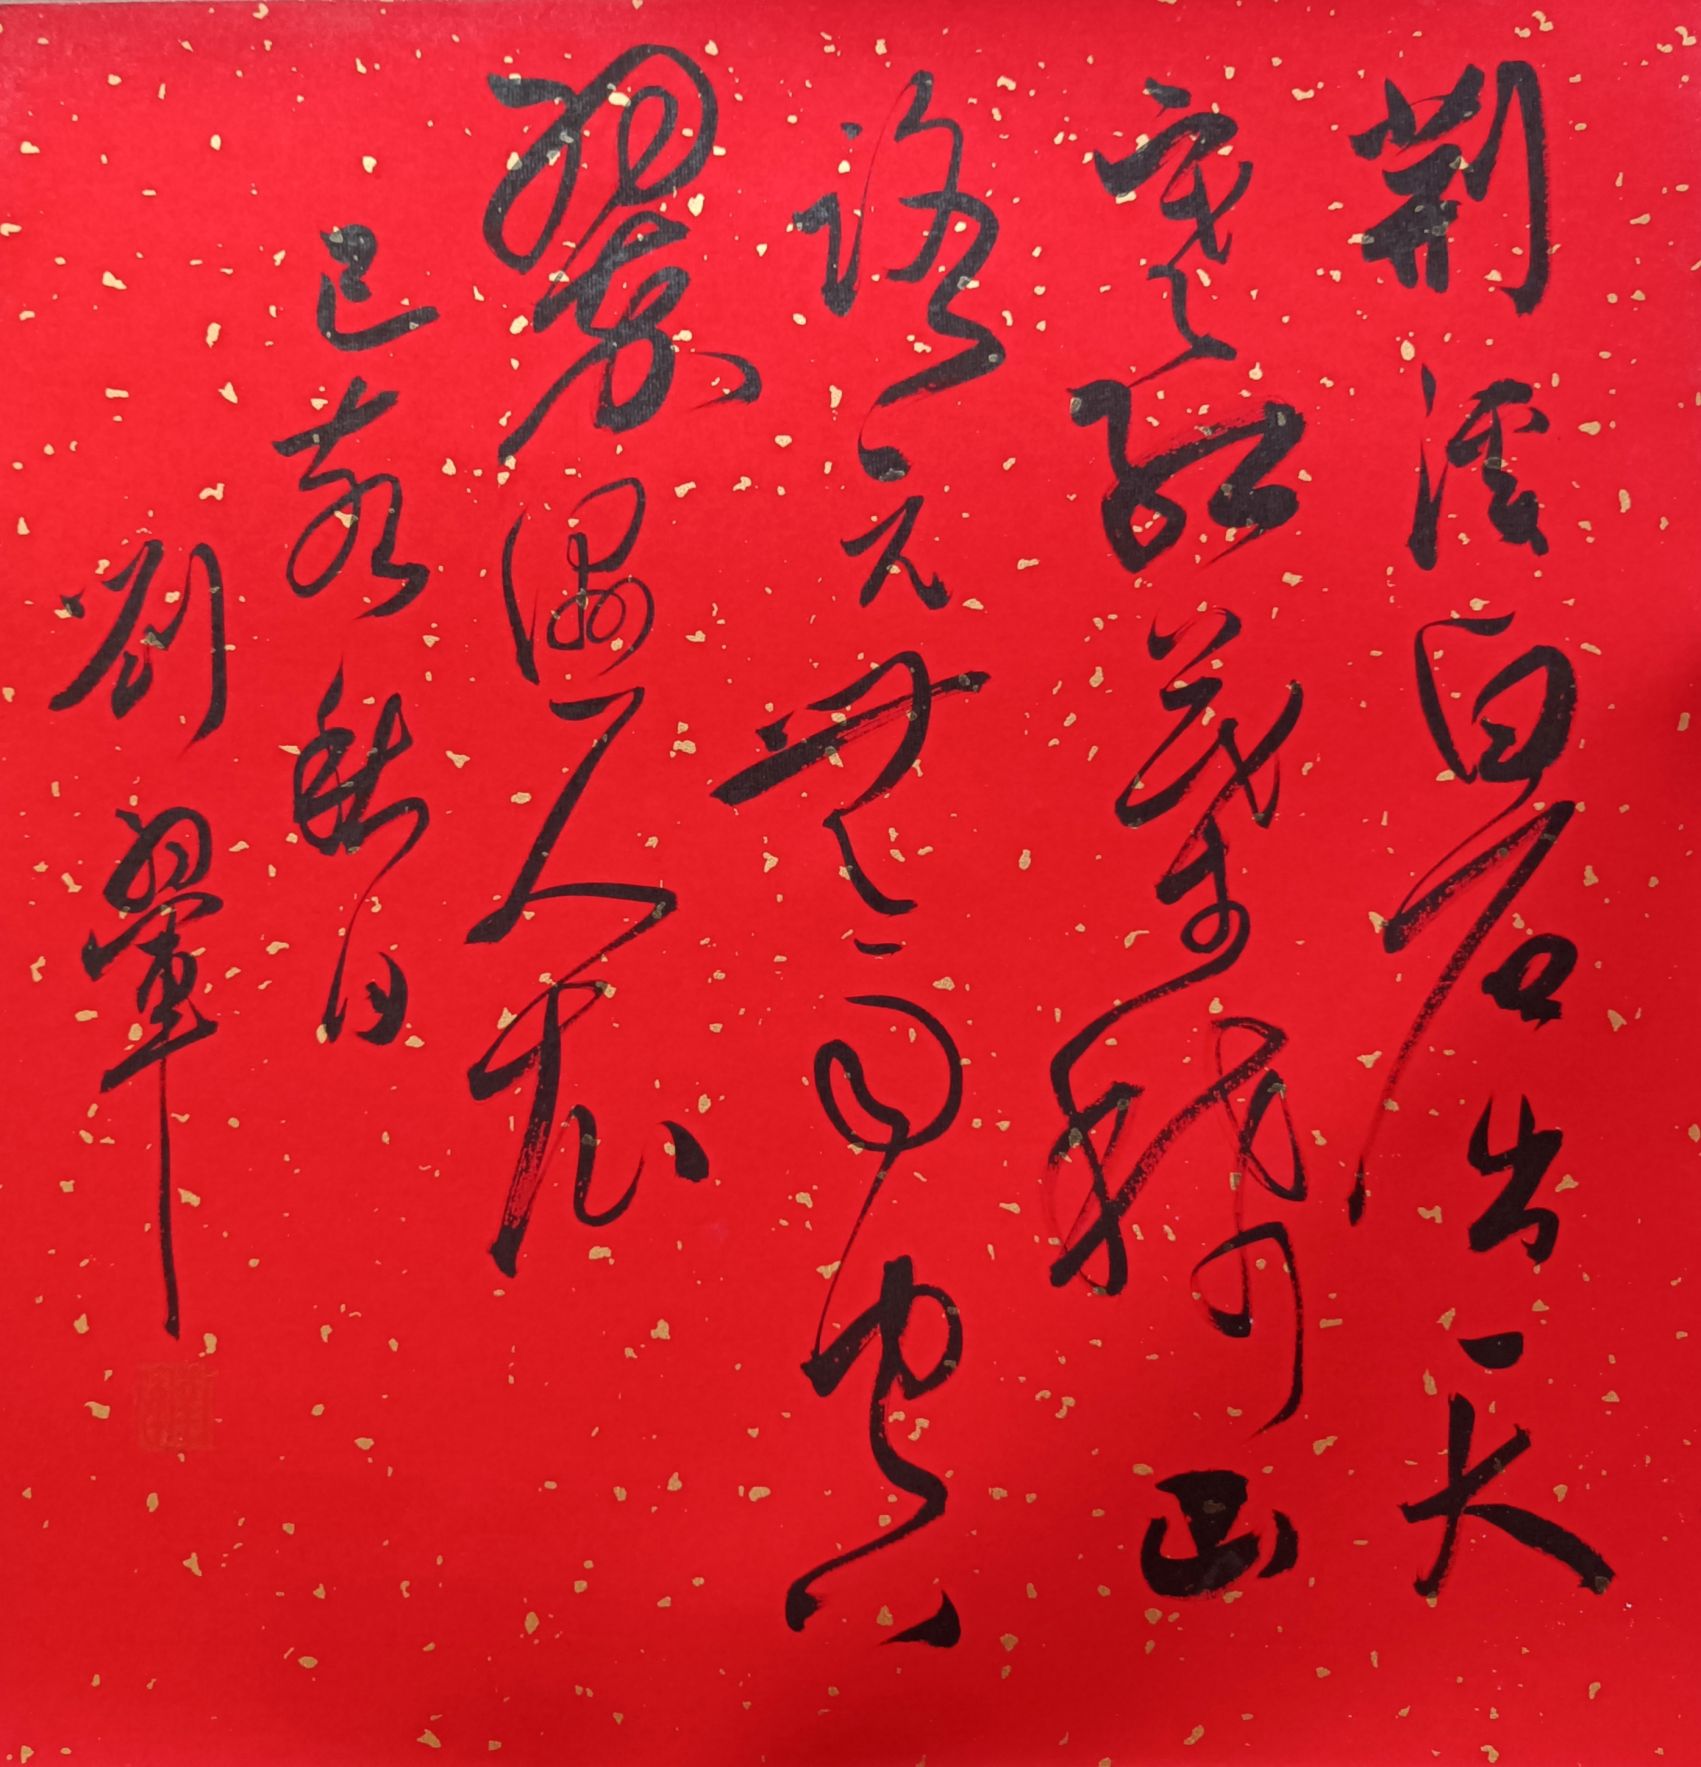 荆溪白石出天
寒紅葉稀山
路元無雨空
翠濕人衣
己亥秋日
劉翬